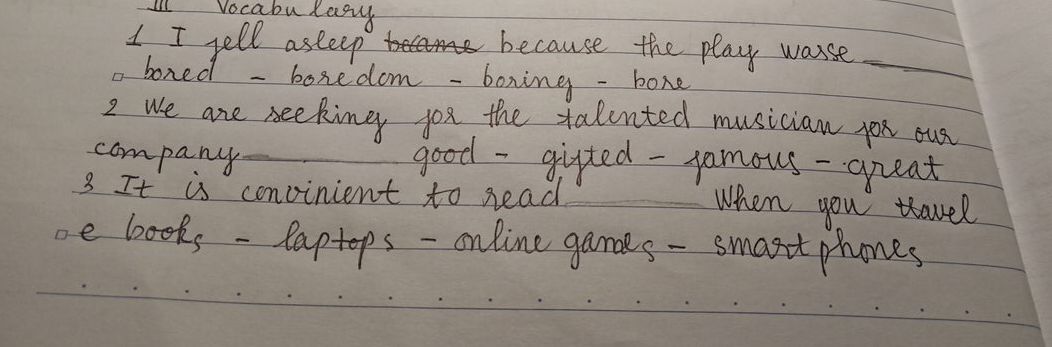 III Vocabulary
1 I fell asleep became because the play wasse
bored - boredom - boring - bore
2 We are seeking for the talented musician for our
company good - gifted - famous - great
3 It is convinient to read When you travel
e books - laptops - online games - smart phones